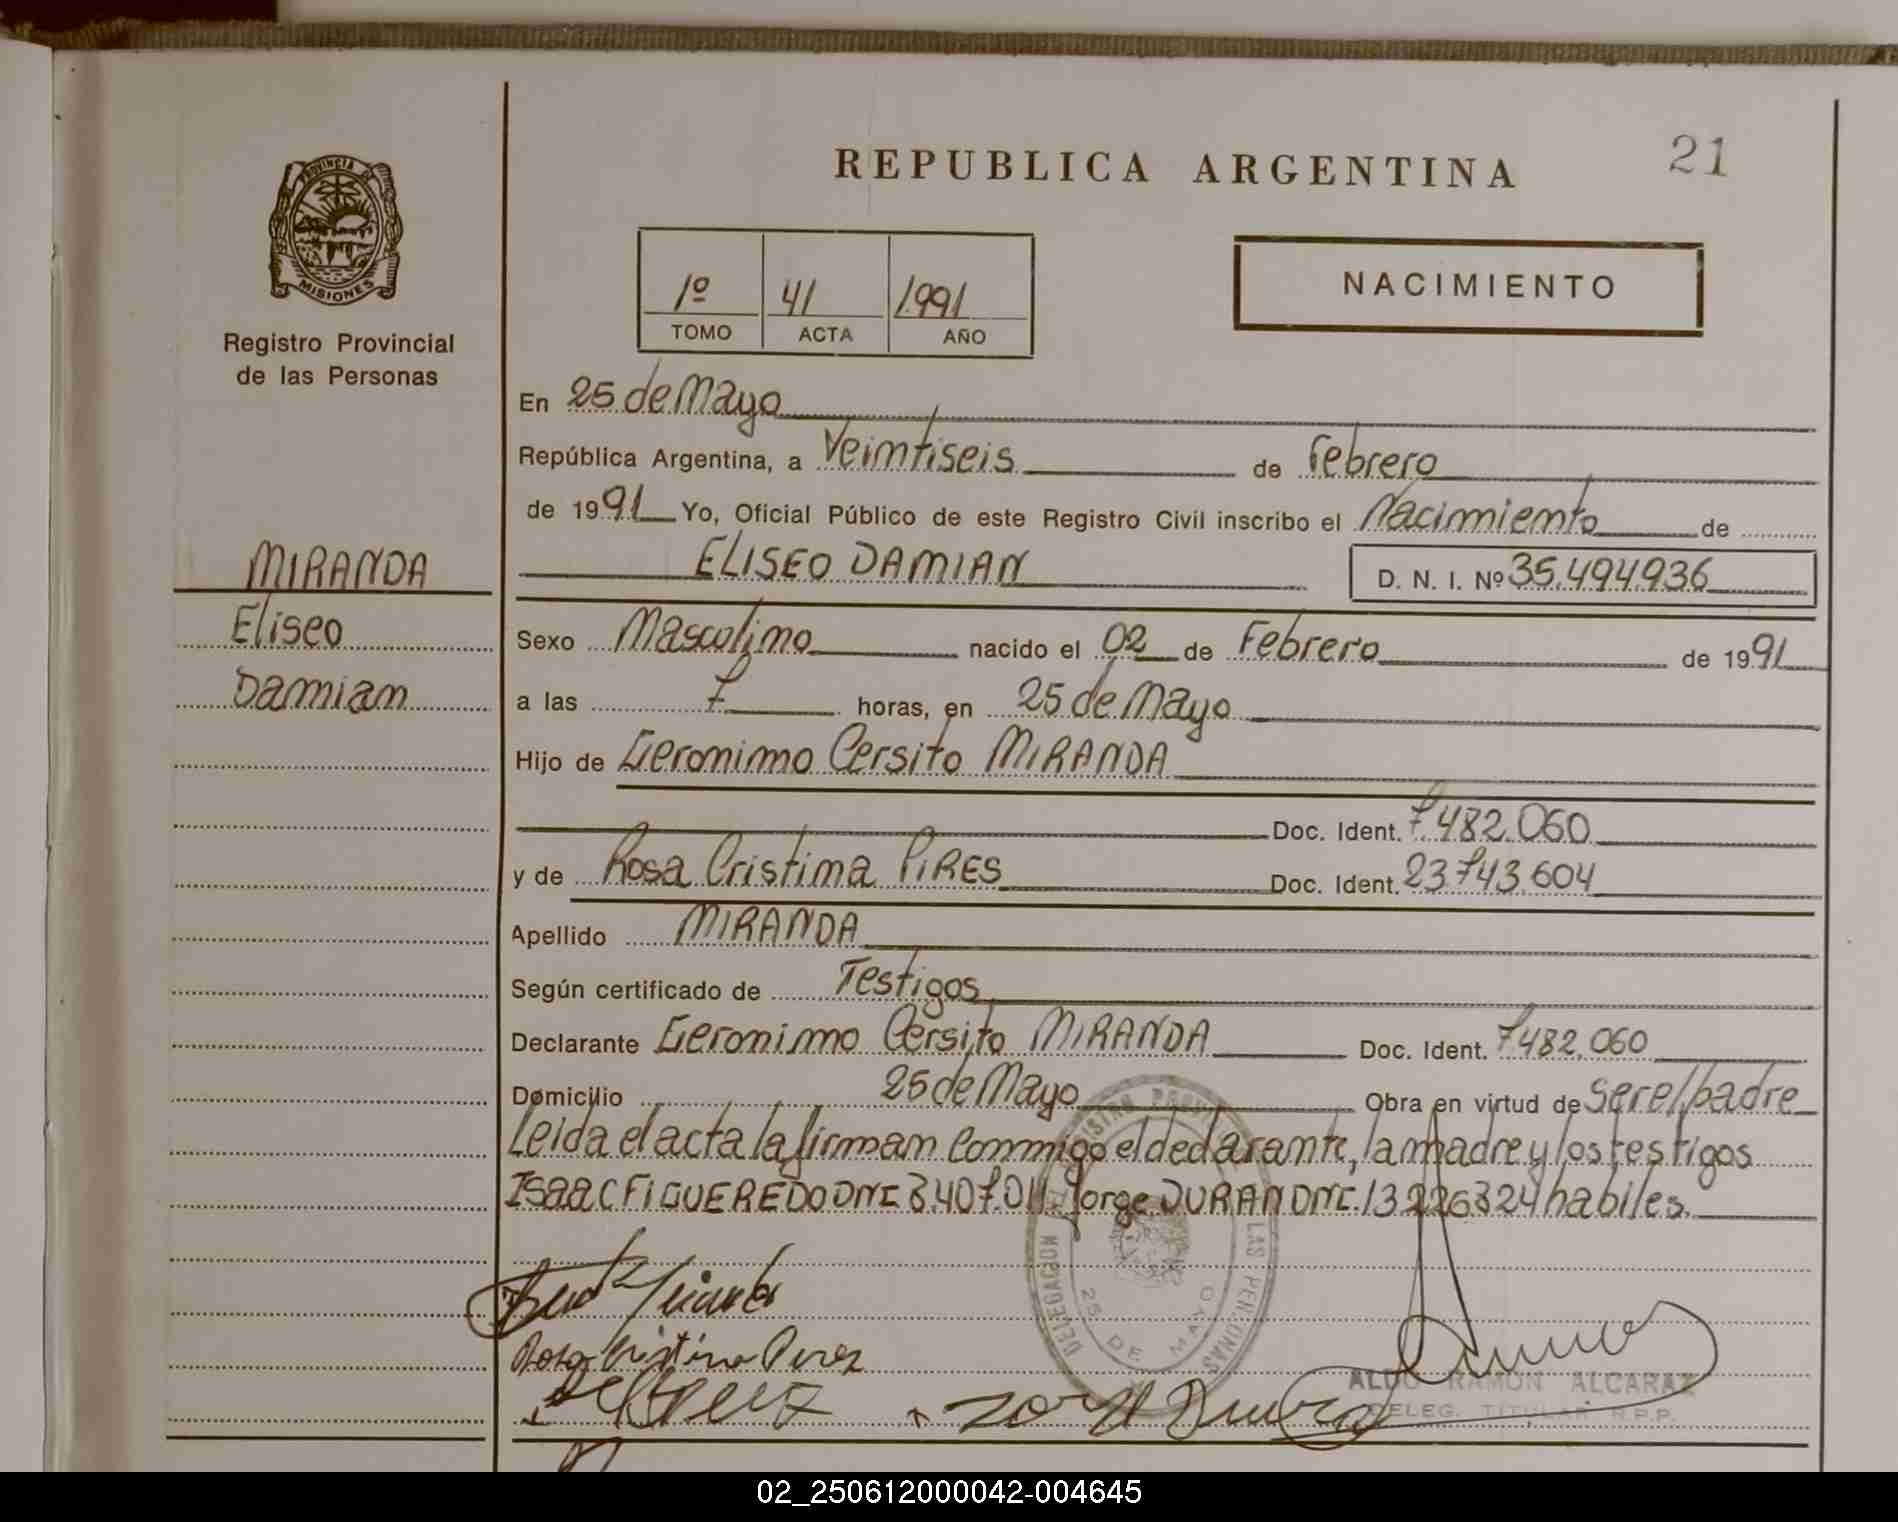 REPUBLICA ARGENTINA
21
PROVINCIA DE
MISIONES
Registro Provincial
de las Personas
1º 41 1991
TOMO ACTA AÑO
NACIMIENTO
En 25 de Mayo
República Argentina, a Veintiseis de Febrero
de 1991 Yo, Oficial Público de este Registro Civil inscribo el Nacimiento de
MIRANDA
ELISEO DAMIAN D. N. I. Nº 35.494.936
Eliseo
Sexo Masculino nacido el 02 de Febrero de 1991
Damian
a las 7 horas, en 25 de Mayo
Hijo de Geronimo Cersito MIRANDA
Doc. Ident. 7.482.060
y de Rosa Cristina PIRES Doc. Ident. 23.743.604
Apellido MIRANDA
Según certificado de Testigos
Declarante Geronimo Cersito MIRANDA Doc. Ident. 7.482.060
Domicilio 25 de Mayo Obra en virtud de ser el padre
Leida el acta la firman conmigo el declarante, la madre y los testigos
Isaac FIGUEREDO DNI 3.407.011 Jorge DURAN DNI. 13226324 habiles.
DELEGACION REGISTRO PROVINCIAL DE LAS PERSONAS
25 DE MAYO
Rosa Cristina
ALDO RAMON ALCARAZ
DELEG. TITULAR R.P.P.
02_250612000042-004645